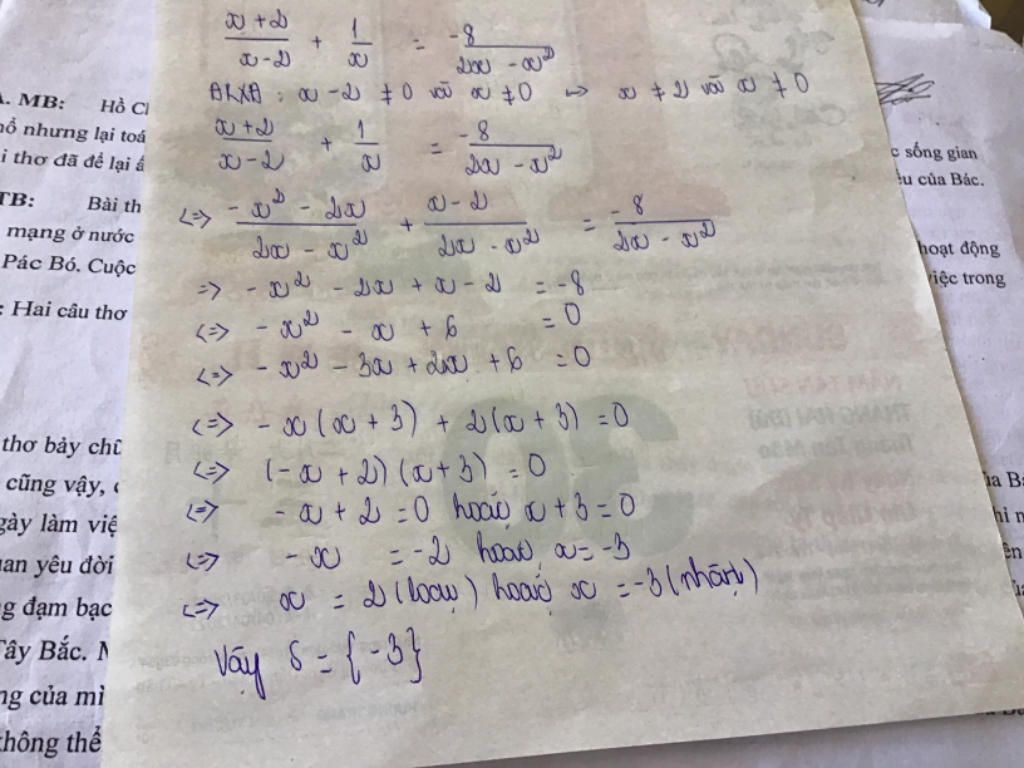 x+2/x-2 + 1/x = -8/2x - x²
ĐKXĐ : x - 2 ≠ 0 và x ≠ 0 => x ≠ 2 và x ≠ 0
x+2/x-2 + 1/x = -8/2x - x²
<=> -x² - 2x/2x - x² + x - 2/2x - x² = -8/2x - x²
=> -x² - 2x + x - 2 = -8
<=> -x² - x + 6 = 0
<=> -x² - 3x + 2x + 6 = 0
<=> -x(x + 3) + 2(x + 3) = 0
<=> (-x + 2)(x + 3) = 0
<=> -x + 2 = 0 hoặc x + 3 = 0
<=> -x = -2 hoặc x = -3
<=> x = 2 (loại) hoặc x = -3 (nhận)
Vậy S = {-3}
MB: Hồ
nhưng lại toá
i thơ đã để lại
TB: Bài th
mạng ở nước
Pác Bó. Cuộc
: Hai câu thơ
thơ bảy chữ
cũng vậy,
gày làm việ
an yêu đời
g đạm bạc
Tây Bắc.
ng của mì
không thể
sống gian
của Bác.
hoạt động
việc trong